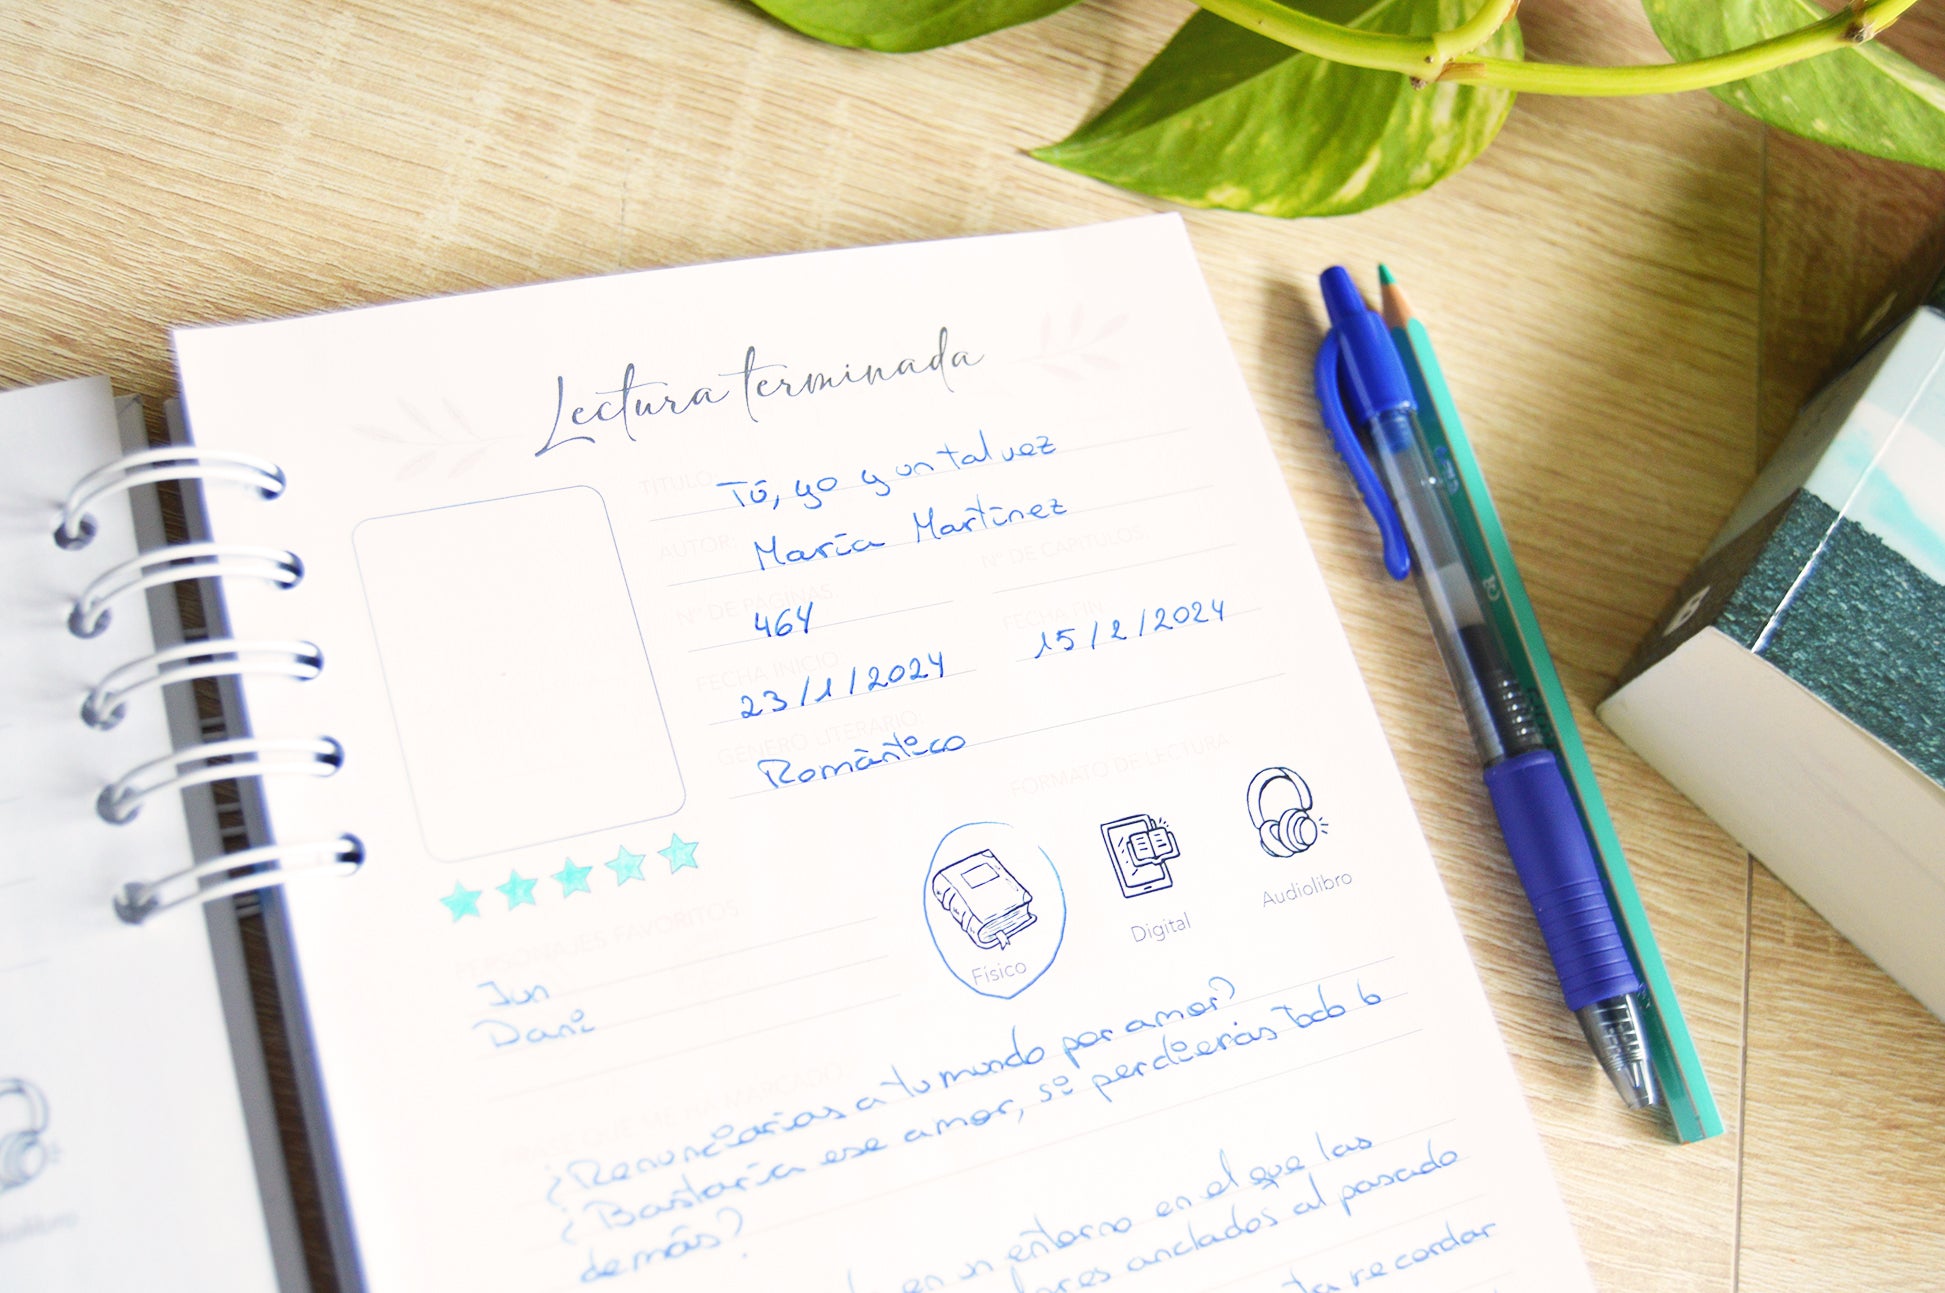 Lectura terminada
TÍTULO: Tú, yo y un tal vez
AUTOR: María Martínez
Nº DE PÁGINAS: Nº DE CAPÍTULOS:
464
FECHA INICIO FECHA FIN
23/1/2024 15/2/2024
GÉNERO LITERARIO:
Romántico
FORMATO DE LECTURA
Físico
Digital
Audiolibro
PERSONAJES FAVORITOS
Jun
Dani
FRASE QUE ME HA MARCADO:
¿Renunciarías a tu mundo por amor?
¿Bastaría ese amor, si perdieras todo lo
demás?
en un entorno en el que las
anclados al pasado
recordar